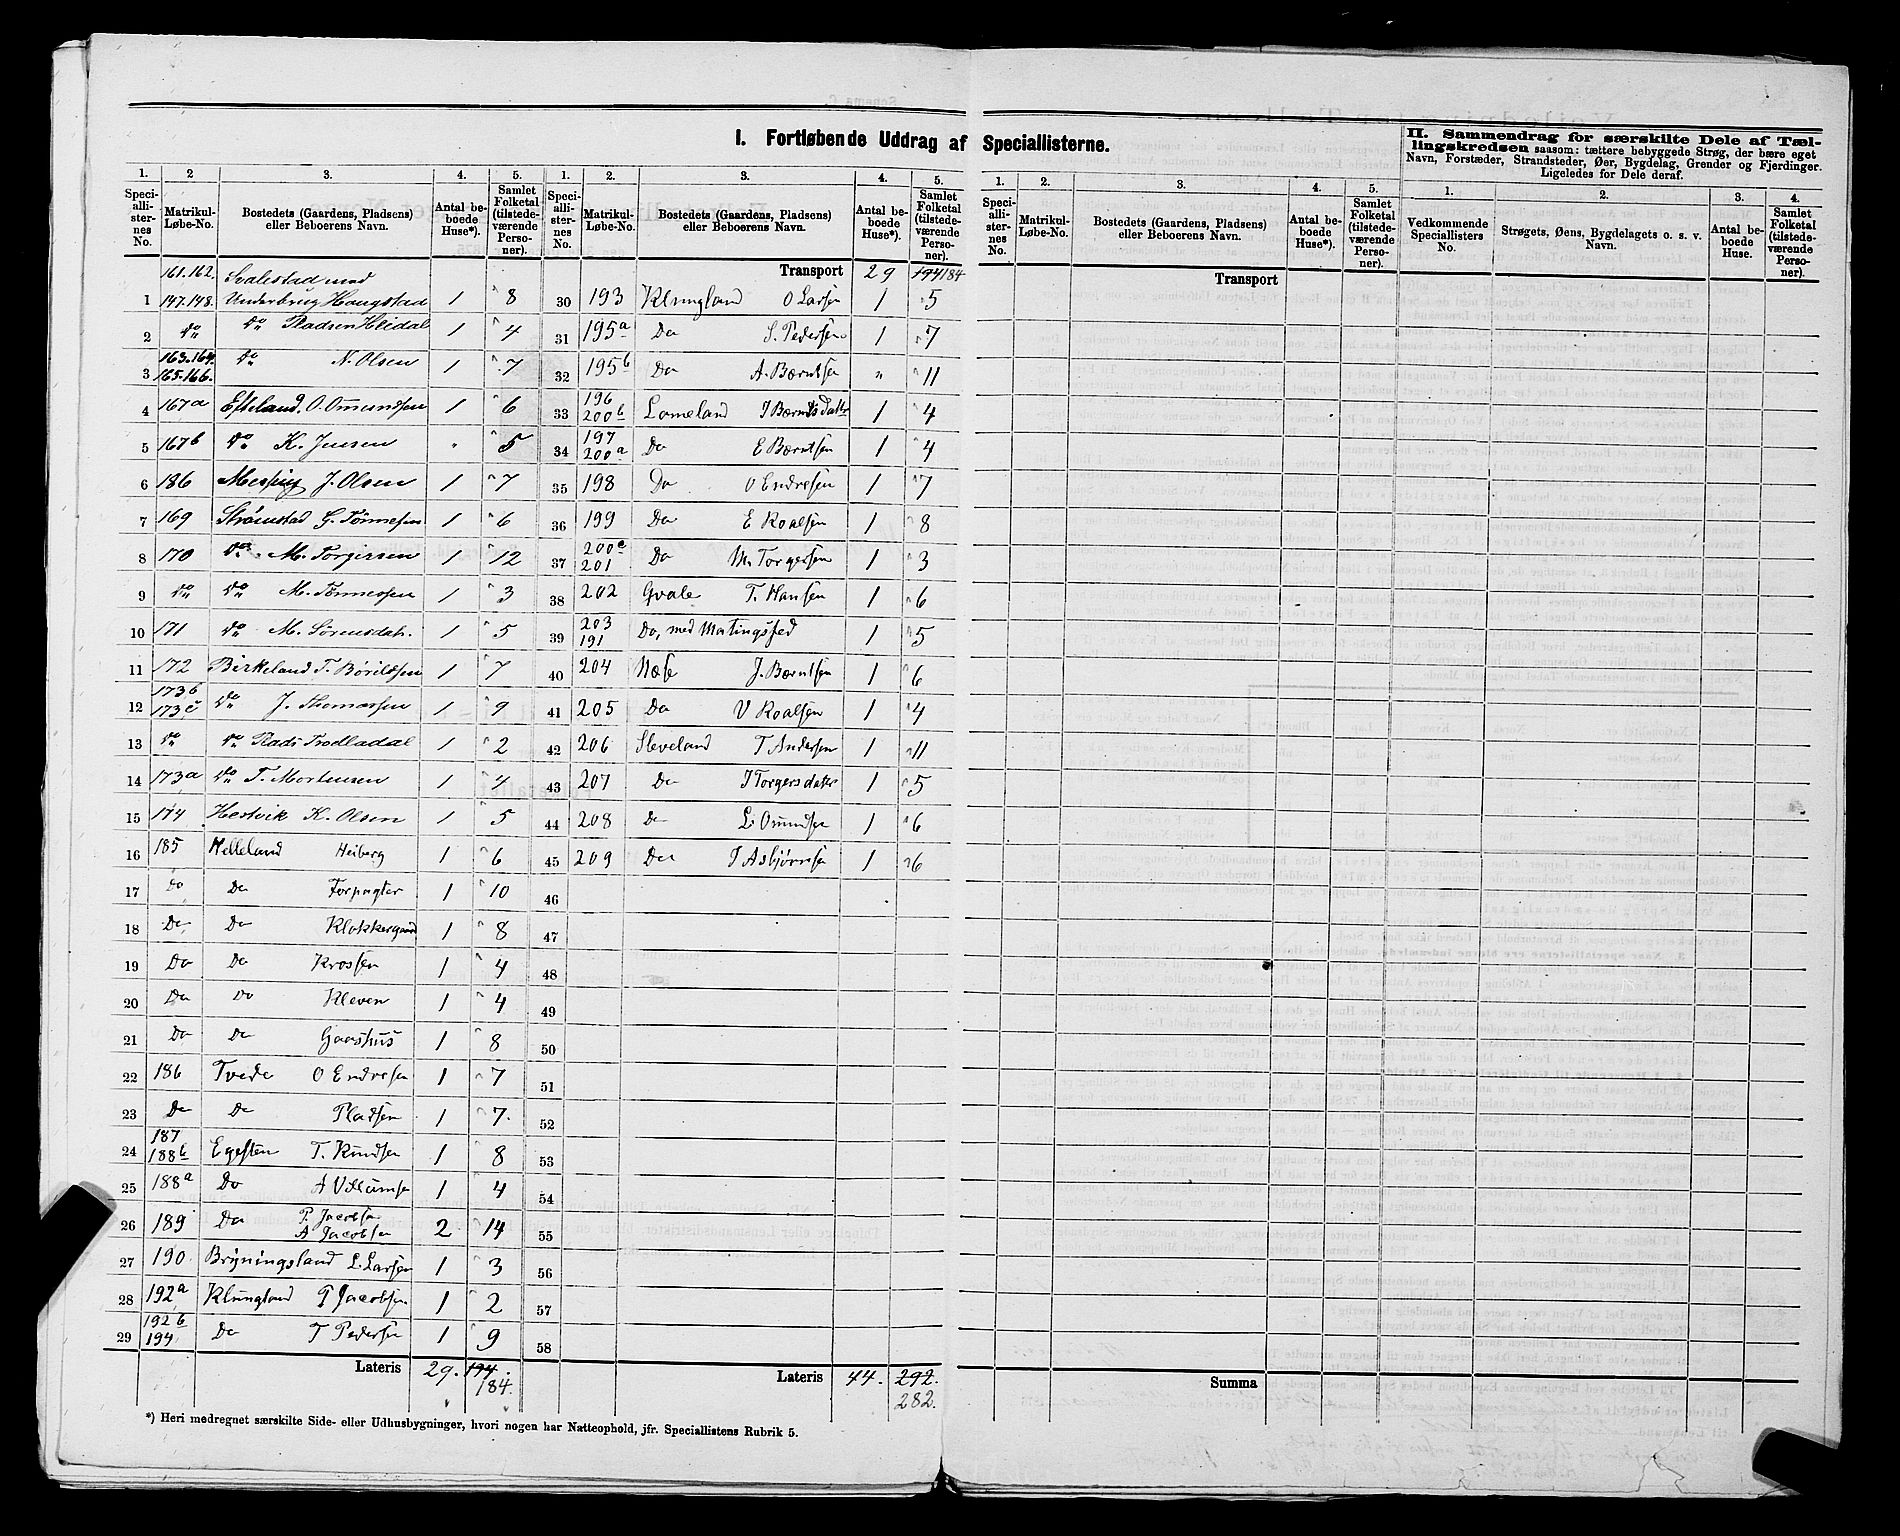 I. Fortløbende Uddrag af Speciallisterne.
II. Sammendrag for særskilte Dele af Tæl-
lingskredsen saasom: tættere bebyggede Strøg, der bære eget
Navn, Forstæder, Strandsteder, Øer, Bygdelag, Grender og Fjerdinger.
Ligeledes for Dele deraf.
1. 2 3. 4. 5. 1. 2. 3. 4. 5. 1. 2. 3. 4. 5. 1. 2. 3. 4.
Speciallisternes No. Matrikul-Løbe-No. Bostedets (Gaardens, Pladsens) eller Beboerens Navn. Antal beboede Huse*). Samlet Folketal (tilstedeværende Personer).
Speciallisternes No. Matrikul-Løbe-No. Bostedets (Gaardens, Pladsens) eller Beboerens Navn. Antal beboede Huse*). Samlet Folketal (tilstedeværende Personer).
Speciallisternes No. Matrikul-Løbe-No. Bostedets (Gaardens, Pladsens) eller Beboerens Navn. Antal beboede Huse*). Samlet Folketal (tilstedeværende Personer).
Vedkommende Speciallisters No. Strøgets, Øens, Bygdelagets o. s. v. Navn. Antal beboede Huse. Samlet Folketal (tilstedeværende Personer).
161.162.
1 147.148. Underbrug Haugstad 1 8
2 do do Pladsen Heidal 1 4
163.164.
3 165.166. do N. Olsen 1 7
4 167a Efteland O. Omundsen 1 6
5 167b do K. Jensen " 5
6 186 J. Olsen 1 7
7 169 Strømstad G. Tønnesen 1 6
8 170 do M. Torgersen 1 12
9 do do M. Tønnessen 1 3
10 171 do M. Sørensdatr. 1 5
11 172 Birkeland T. Børildsen 1 7
173b
12 173c do J. Thomassen 1 9
13 do do Plads Trodladal 1 2
14 173a do T. Mortensen 1 4
15 174 Hestvik K. Olsen 1 5
16 185 Helleland Heiberg 1 6
17 Do Do Forpagter 1 10
18 Do Do Klokkergaard 1 8
19 Do Do Krossen 1 4
20 Do Do Kleven 1 4
21 Do Do Gaashus 1 8
22 186 Tvede O Endresen 1 7
23 Do Do Pladsen 1 7.
187
24 188b Egesten T. Knudsen 1 8
25 188a Do A Villumsen 1 4
26 189 Do P. Jacobsen
A Jacobsen 2 14
27 190 Bryningsland L. Larsen 1 3
28 192a Klungland P Jacobsen 1 2
192b
29 194 Do T Pedersen 1 9
Lateris 29. 194.
184.
Transport 29 194 184
30 193 Klungland O Larsen 1 5
31 195a Do S. Pedersen 1 7
32 195b Do A. Bærntsen " 11
196
33 200b Lomeland I Bærntsdatter 1 4
197
34 200a Do E Bærntsen 1 4
35 198 Do O Endresen 1 7
36 199 Do E Roalsen 1 8
200c
37 201 Do M. Torgersen 1 3
38 202 Gvale T. Hansen 1 6
203
39 191 Do, med Matingsted 1 5
40 204 Næse J. Bærntsen 1 6
41 205 Do V Roalsen 1 4
42 206 Sleveland T Andersen 1 11
43 207 Do I Torgersdatter 1 5
44 208 Do L. Omundsen 1 6
45 209 Do T Asbjørnsen 1 6
46
47
48
49
50
51
52
53
54
55
56
57
58
Lateris 44. 292.
282.
Transport
Summa
*) Heri medregnet særskilte Side- eller Udhusbygninger, hvori nogen har Natteophold, jfr. Speciallistens Rubrik 5.